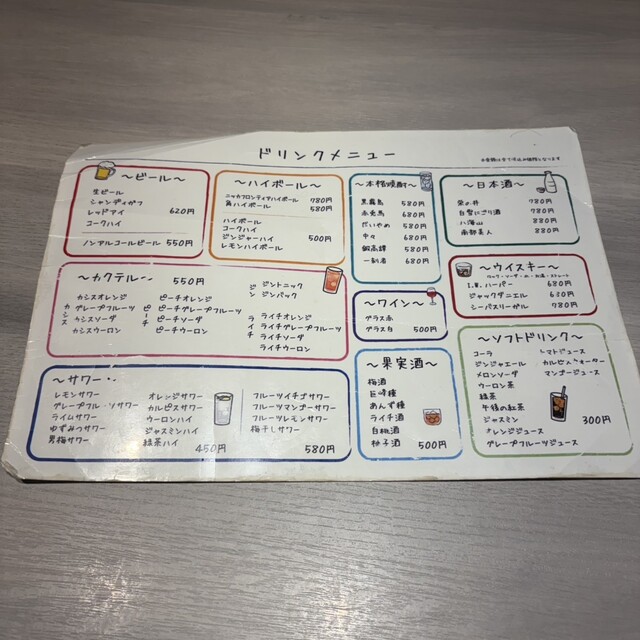 ドリンクメニュー
※金額は全て税込み価格となります
～ビール～
生ビール
シャンディガフ
レッドアイ
コークハイ
620円
ノンアルコールビール 550円
～ハイボール～
ニッカフロンティアハイボール 780円
角ハイボール 580円
ハイボール
コークハイ
ジンジャーハイ
レモンハイボール
500円
～本格焼酎～
黒霧島 580円
赤兎馬 680円
だいやめ 580円
中々 680円
銀高譚 580円
一刻者 680円
～日本酒～
栄の井 780円
白鷺にごり酒 780円
八海山 880円
南部美人 880円
～カクテル～ 550円
カシス
カシスオレンジ
カシスグレープフルーツ
カシスソーダ
カシスウーロン
ピーチ
ピーチオレンジ
ピーチグレープフルーツ
ピーチソーダ
ピーチウーロン
ジン
ジントニック
ジンバック
ライチ
ライチオレンジ
ライチグレープフルーツ
ライチソーダ
ライチウーロン
～ワイン～
グラス赤
グラス白 500円
～ウイスキー～
I.W.ハーパー 680円
ジャックダニエル 680円
シーバスリーガル 780円
～サワー～
レモンサワー
グレープフルーツサワー
ライムサワー
ゆずみつサワー
男梅サワー
オレンジサワー
カルピスサワー
ウーロンハイ
ジャスミンハイ
緑茶ハイ
450円
フルーツイチゴサワー
フルーツマンゴーサワー
フルーツレモンサワー
梅干しサワー
580円
～果実酒～
梅酒
巨峰種
あんず種
ライチ酒
白桃酒
柚子酒
500円
～ソフトドリンク～
コーラ
ジンジャエール
メロンソーダ
ウーロン茶
緑茶
午後の紅茶
ジャスミン
オレンジジュース
グレープフルーツジュース
トマトジュース
カルピスウォーター
マンゴージュース
300円